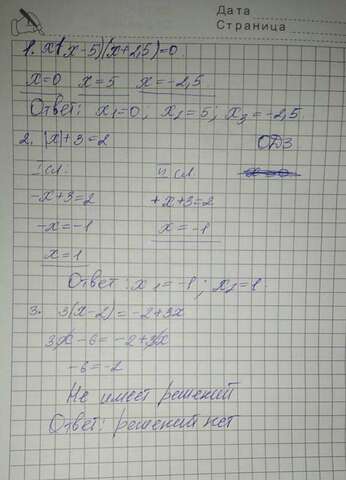 Дата
Страница
1. x(x-5)(x+2,5)=0
x=0 x=5 x=-2,5
Ответ: x₁=0, x₂=5; x₃=-2,5.
2. |x|+3=2 ОДЗ
I сл. II сл.
-x+3=2 +x+3=2
-x=-1 x=-1
x=1
Ответ: x₁=-1; x₂=1.
3. 3(x-2)=-2+3x
3x-6=-2+3x
-6=-2
Не имеет решений
Ответ: решений нет